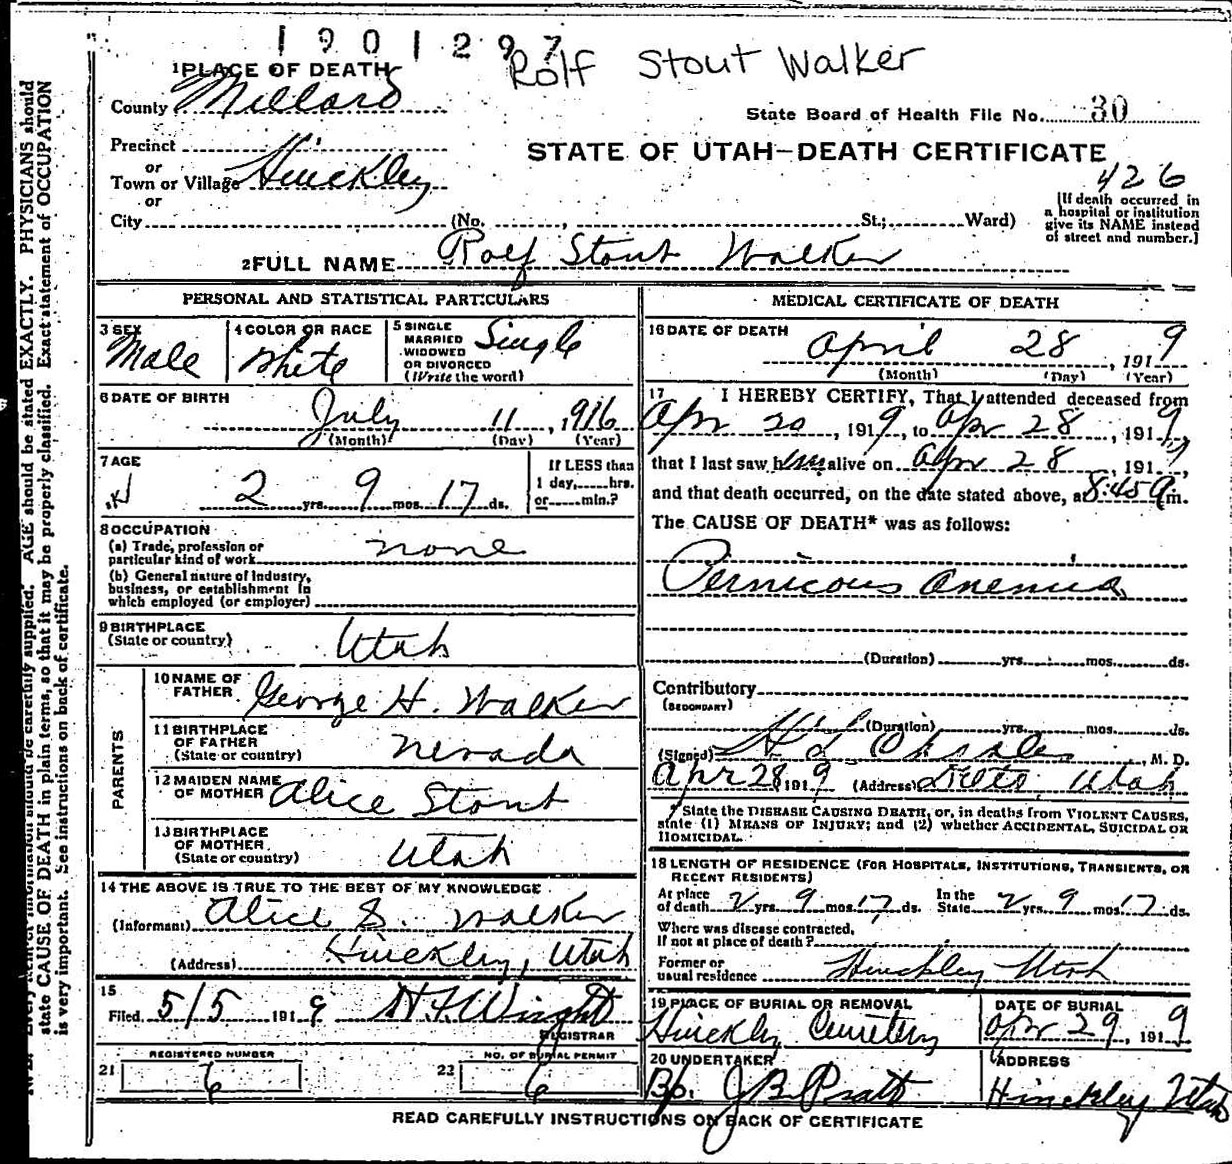 1901297
Rolf Stout Walker
1 PLACE OF DEATH
County Millard
State Board of Health File No. 30
Precinct
or
Town or Village Hinckley
or
City (No. , St.; Ward)
STATE OF UTAH—DEATH CERTIFICATE
426
[If death occurred in
a hospital or institution
give its NAME instead
of street and number.]
2 FULL NAME Rolf Stout Walker
PERSONAL AND STATISTICAL PARTICULARS
3 SEX
Male
4 COLOR OR RACE
White
5 SINGLE
MARRIED
WIDOWED
OR DIVORCED
(Write the word)
Single
6 DATE OF BIRTH
July 11, 1916
(Month) (Day) (Year)
7 AGE
2 yrs. 9 mos. 17 ds.
If LESS than
1 day, hrs.
or min.?
8 OCCUPATION
(a) Trade, profession or
particular kind of work none
(b) General nature of Industry,
business, or establishment in
which employed (or employer)
9 BIRTHPLACE
(State or country) Utah
PARENTS
10 NAME OF
FATHER George H. Walker
11 BIRTHPLACE
OF FATHER
(State or country) Nevada
12 MAIDEN NAME
OF MOTHER Alice Stout
13 BIRTHPLACE
OF MOTHER
(State or country) Utah
14 THE ABOVE IS TRUE TO THE BEST OF MY KNOWLEDGE
(Informant) Alice S. Walker
(Address) Hinckley, Utah
15
Filed 5/5 1919 Wright
REGISTRAR
REGISTERED NUMBER
21 6
NO. OF BURIAL PERMIT
22 6
MEDICAL CERTIFICATE OF DEATH
16 DATE OF DEATH
April 28, 1919
(Month) (Day) (Year)
17 I HEREBY CERTIFY, That I attended deceased from
Apr 20, 1919, to Apr 28, 1919,
that I last saw him alive on Apr 28, 1919,
and that death occurred, on the date stated above, at 8:45 a m.
The CAUSE OF DEATH* was as follows:
Pernicous Anemia
(Duration) yrs. mos. ds.
Contributory
(SECONDARY)
(Duration) yrs. mos. ds.
(Signed) , M. D.
Apr 28, 1919 (Address) Delta, Utah
* State the DISEASE CAUSING DEATH, or, in deaths from VIOLENT CAUSES,
state (1) MEANS OF INJURY; and (2) whether ACCIDENTAL, SUICIDAL OR
HOMICIDAL.
18 LENGTH OF RESIDENCE (FOR HOSPITALS, INSTITUTIONS, TRANSIENTS, OR
RECENT RESIDENTS)
At place of death 2 yrs. 9 mos. 17 ds. In the State 2 yrs. 9 mos. 17 ds.
Where was disease contracted,
if not at place of death?
Former or
usual residence Hinckley Utah
19 PLACE OF BURIAL OR REMOVAL
Hinckley Cemetery
DATE OF BURIAL
Apr 29, 1919
20 UNDERTAKER
Bp. J B Pratt
ADDRESS
Hinckley Utah
READ CAREFULLY INSTRUCTIONS ON BACK OF CERTIFICATE
carefully supplied. AGE should be stated EXACTLY. PHYSICIANS should
state CAUSE OF DEATH in plain terms, so that it may be properly classified. Exact statement of OCCUPATION
is very important. See instructions on back of certificate.